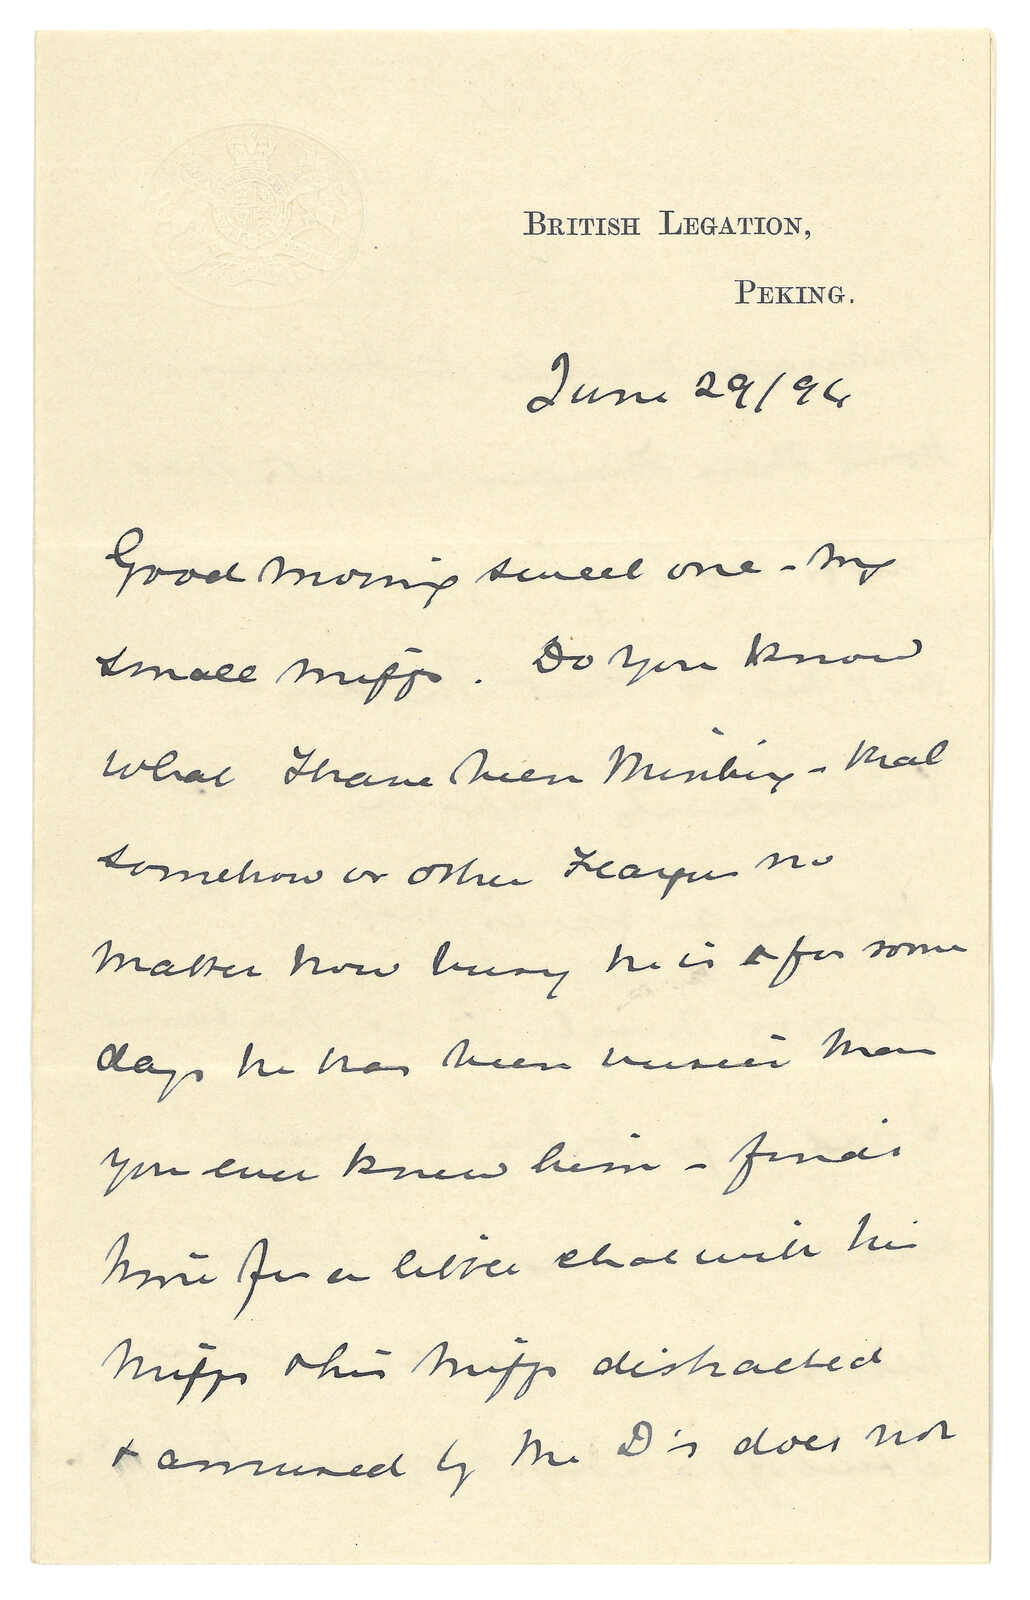 BRITISH LEGATION,
PEKING.
June 29/94
Good morning sweet one - my
small miffs. Do you know
what I have been thinking - that
somehow or other no
matter how busy he is & for some
days he has been busier than
you ever knew him - finds
time for a little chat with his
miffs & his miffs distracted
& amused by the D's does not